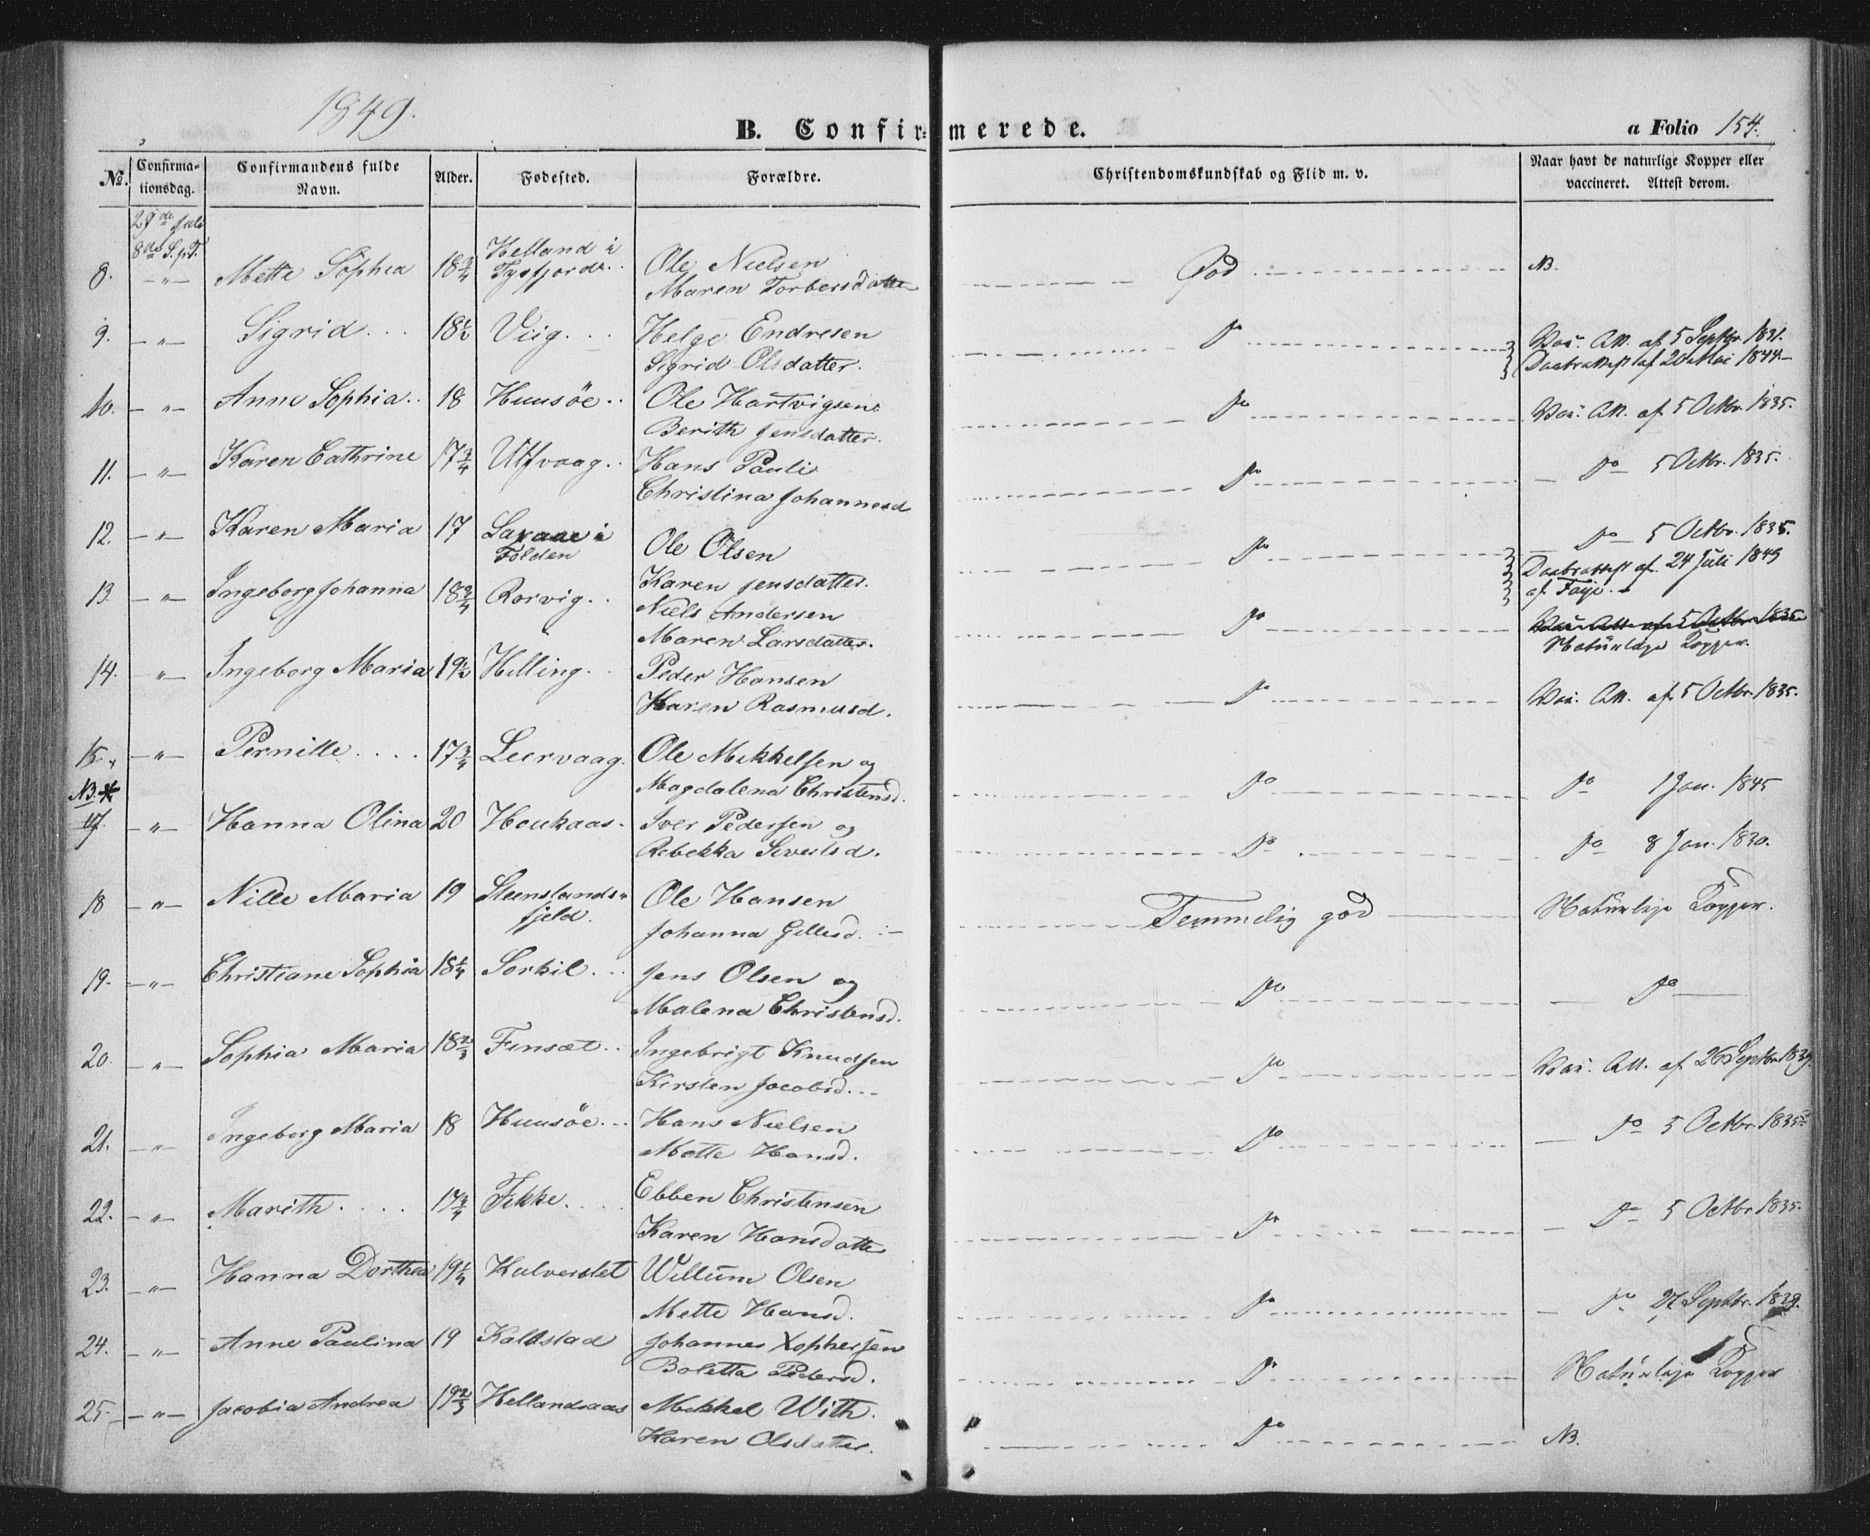 1849.
B. Confirmerede.
a Folio 154.
No. Confirmationsdag. Confirmandens fulde Navn. Alder. Fodested. Forældre. Christendomskundskab og Flid m. v. Naar havt de naturlige Kopper eller vaccineret. Attest derom.
29de Juli
8de Sept.
8. -"- Mette Sophia 18 3/4 Helland i Tysfjord. Ole Nielsen
Maren Torbersdatter God NB.
9. -"- Sigrid 18 1/2 Viig Helge Endresen
Sigrid Olsdatter. do Vac. Att. af 5 Septbr. 1831.
Daabsattest af 20 Mai 1844
10. -"- Anne Sophia 18 Huusöe Ole Hartvigsen
Berith Jensdatter. do Vac. Att. af 5 Octbr. 1835.
11. -"- Karen Cathrine 17 3/4 Utfvaag Hans Pauli
Christina Johannesd do do 5 Octbr. 1835.
12. -"- Karen Maria 17 i Folden Ole Olsen
Karen Jensdatter. do do 5 Octbr. 1835.
Daabsattest af 24 Juli 1849
af
13. -"- Ingeborg Johanna 18 3/4 Rorvig Niels Andersen
Maren Larsdatter. do Vac. Att. af 5 Octbr. 1835
Naturlige Kopper.
14. -"- Ingeborg Maria 19 1/2 Helling Peder Hansen
Karen Rasmusd. do Vac. Att. af 5 Octbr. 1835.
15. -"- Pernille 17 3/4 Leervaag. Ole Mikkelsen og
Magdalena Christensd. do do 1 Jan. 1845
NB.*
17. -"- Hanna Olina 20 Houkaas Iver Pedersen og
Rebekka Sivertsd. do do 8 Jan. 1830.
18 -"- Nille Maria 19 Steenslandsfjeld. Ole Hansen
Johanna Gillesd. Temmelig god Naturlige Kopper.
19. -"- Christiane Sophia 18 1/4 Sorkil Jens Olsen og
Malena Christensd. do do
20. -"- Sophia Maria 18 2/3 Finsæt Ingebrigt Knudsen
Kirsten Jacobsd. do Vac. Att. af 26 Septbr. 1839.
21. -"- Ingeborg Maria 18 Huusöe Hans Nielsen
Mette Hansd. do do 5 Octbr. 1835
22. -"- Marith 17 3/4 Fikke Ebben Christensen
Karen Hansdatte do do 5 Octbr 1835.
23. -"- Hanna Dorthea 19 1/4 Kalveislet Willum Olsen
Mette Hansd. do do 27 Septbr. 1839.
24. -"- Anne Paulina 19 Kaldstad Johannes Xophersen
Boletta Pedersd. do Naturlige Kopper
25. -"- Jacobia Andrea 19 2/3 Hellandsaas Mikkel With.
Karen Olsdatter. do NB.